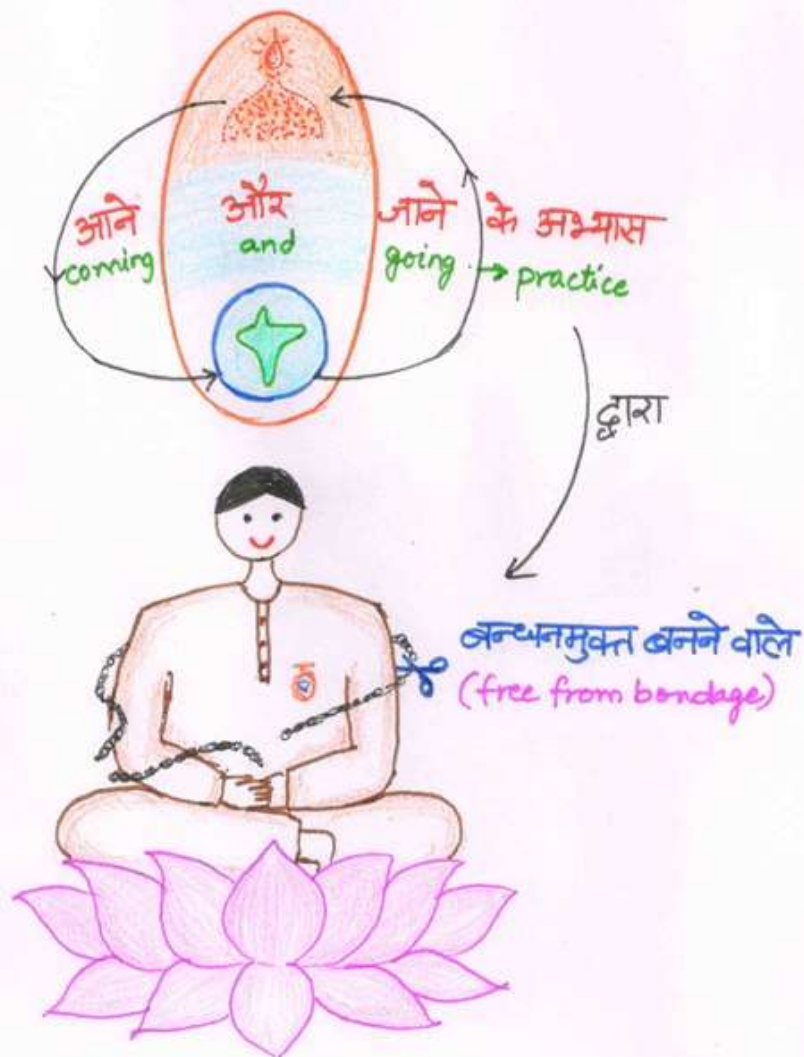 आने और जाने के अभ्यास
coming and going → practice
द्वारा
बन्धनमुक्त बनने वाले
(free from bondage)